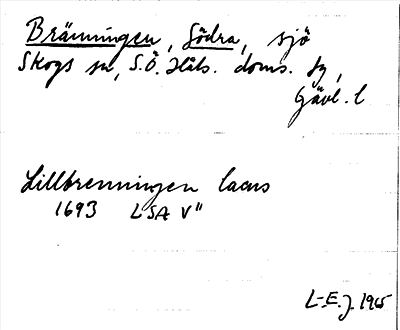 Bränningen, Södra, sjö
Skogs sn, S.Ö. Häls. doms. tg,
Gävl. l
Lillbrenningen lacus
1693 LSA V"
L-E. J. 1965